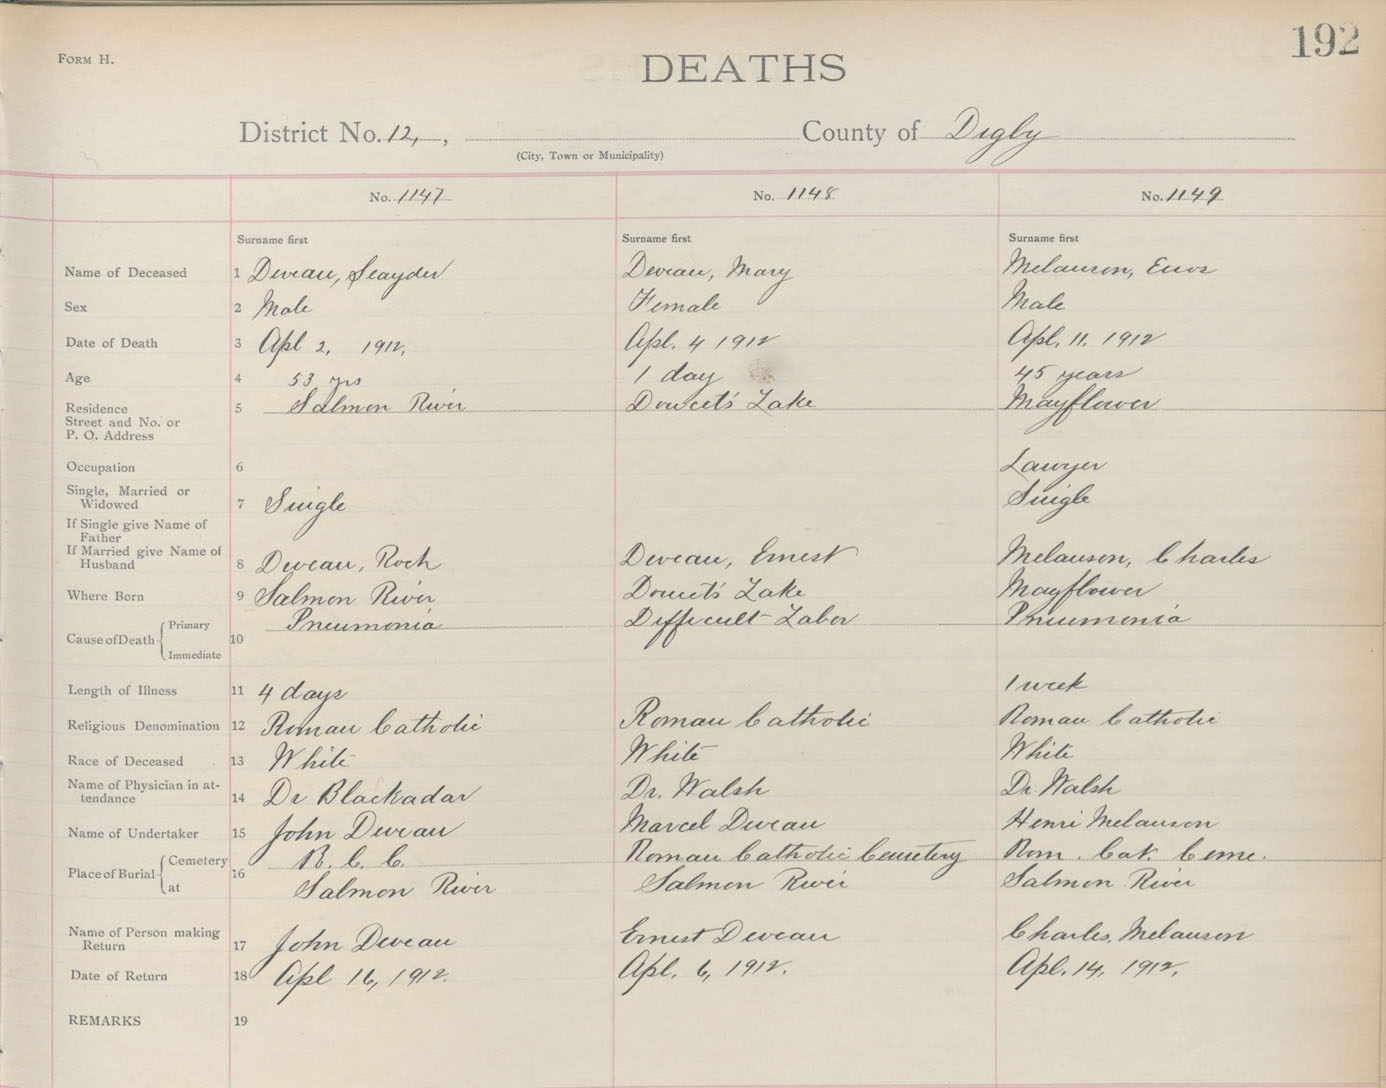 192
FORM H.
DEATHS
District No. 12, , County of Digby
(City, Town or Municipality)
No. 1147 No. 1148 No. 1149
Surname first Surname first Surname first
Name of Deceased 1 Deveau, Seayder Deveau, Mary Melanson, Enos
Sex 2 Male Female Male
Date of Death 3 Apl 2, 1912, Apl. 4 1912 Apl. 11. 1912
Age 4 53 yrs 1 day 45 years
Residence 5 Salmon River Doucet's Lake Mayflower
Street and No. or
P. O. Address
Occupation 6 Lawyer
Single, Married or
Widowed 7 Single Single
If Single give Name of
Father
If Married give Name of
Husband 8 Deveau, Roch Deveau, Ernest Melanson, Charles
Where Born 9 Salmon River Doucet's Lake Mayflower
Cause of Death Primary 10 Pneumonia Difficult Labor Pneumonia
Immediate
Length of Illness 11 4 days 1 week
Religious Denomination 12 Roman Catholic Roman Catholic Roman Catholic
Race of Deceased 13 White White White
Name of Physician in at-
tendance 14 Dr Blackadar Dr. Walsh Dr. Walsh
Name of Undertaker 15 John Deveau Marcel Deveau Henri Melanson
Place of Burial Cemetery 16 R. C. C. Roman Catholic Cemetery Rom. Cat. Ceme.
at Salmon River Salmon River Salmon River
Name of Person making
Return 17 John Deveau Ernest Deveau Charles, Melanson
Date of Return 18 Apl 16, 1912. Apl. 6, 1912. Apl. 14, 1912.
REMARKS 19